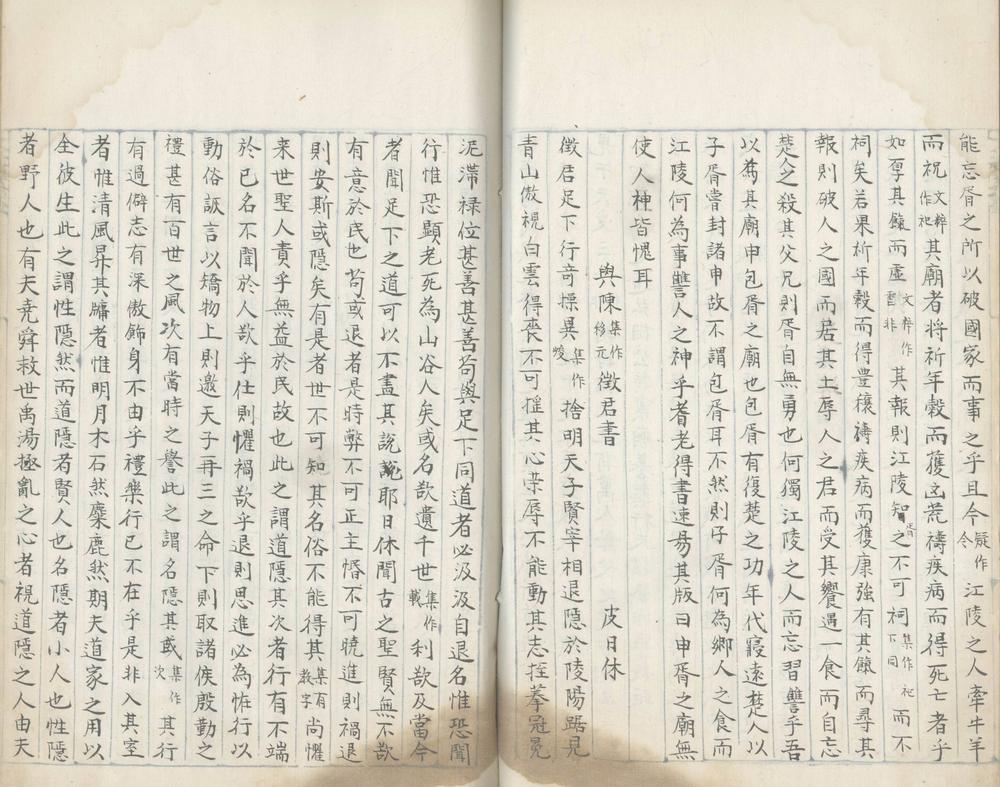 能忘胥之所以破國家而事之乎且今疑作令江陵之人牽牛羊
而祝文粹作祀其廟者將祈年穀而獲凶荒禱疾病而得死亡者乎
如享其饋而虛文粹作書非其報則江陵知胥之不可祠集作祀下同而不
祠矣若果祈年穀而得豊穰禱疾病而獲康強有其饋而尋其
報則破人之國而居其土辱人之君而受其饗遇一食而自忘
楚人之殺其父兄則胥自無勇也何獨江陵之人而忘習讐乎吾
以為其廟申包胥之廟也包胥有復楚之功年代寢遠楚人以
子胥嘗封諸申故不謂包胥耳不然則仔胥何為鄉人之食而
江陵何為事讐人之神乎耆老得書速易其版曰申胥之廟無
使人神皆愧耳
與陳集作移元徵君書 皮日休
徵君足下行竒操異集作峻捨明天子賢宰相退隱於陵陽踞見
青山傲視白雲得喪不可搖其心榮辱不能動其志挃拳冠冕
泥滯禄位甚善甚善苟與足下同道者必汲汲自退名惟恐聞
行惟恐顯老死為山谷人矣或名欲遺千世集作載利欲及當今
者聞足下之道可以不盡其說說耶日休聞古之聖賢無不欲
有意於民也苟或退者是時弊不可正主惛不可曉進則禍退
則安斯或隱矣有是者世不可知其名俗不能得其集有教字尚懼
来世聖人責乎無益於民故也此之謂道隱其次者行有不端
於已名不聞於人欲乎仕則懼禍欲乎退則思進必為怍行以
動俗詼言以矯物上則邀天子再三之命下則取諸侯殷勤之
禮甚有百世之風次有當時之譽此之謂名隱其或集作次其行
有過僻志有深傲飾身不由乎禮樂行已不在乎是非入其室
者惟清風昇其牖者惟明月木石然麋鹿然期夫道家之用以
全彼生此之謂性隱然而道隱者賢人也名隱者小人也性隱
者野人也有夫堯舜救世禹湯拯亂之心者視道隱之人由夫